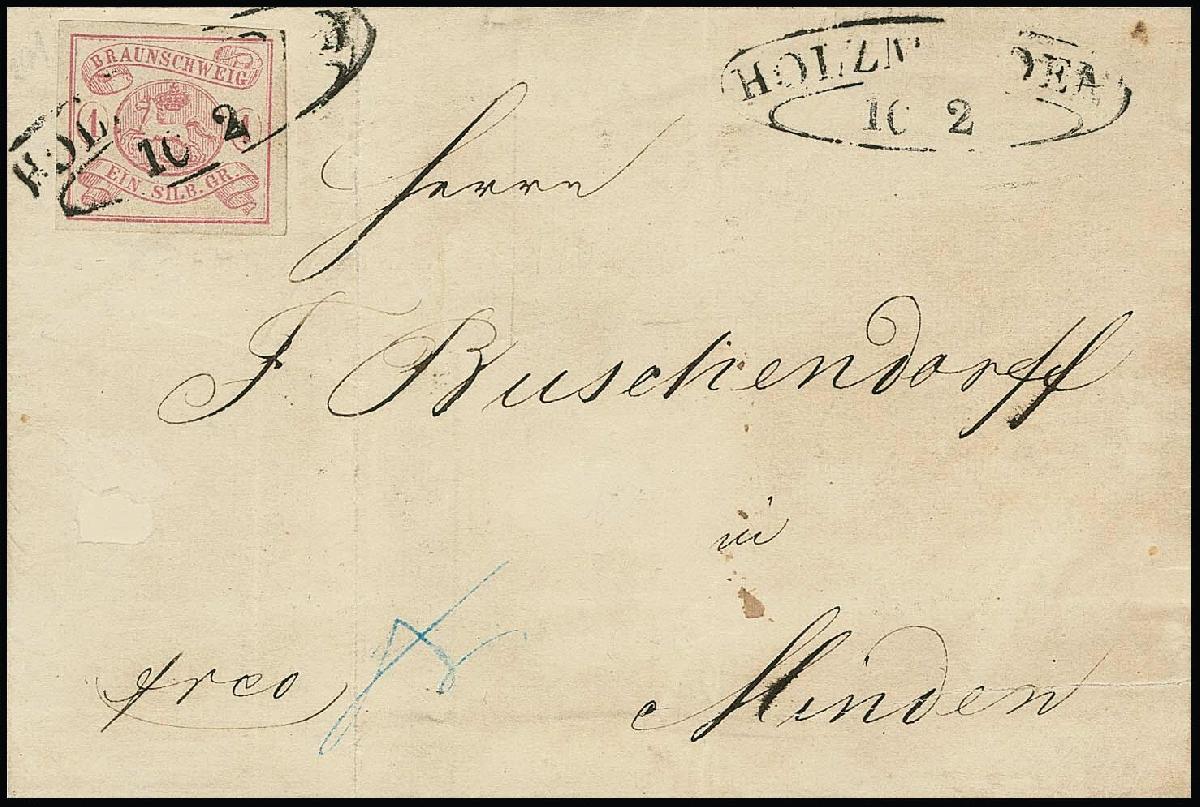 BRAUNSCHWEIG
1
EIN. SILB. GR.
HOL
10 2
HOLZM DEN
10 2
Herrn
F Buschendorff
in
Minden
frco